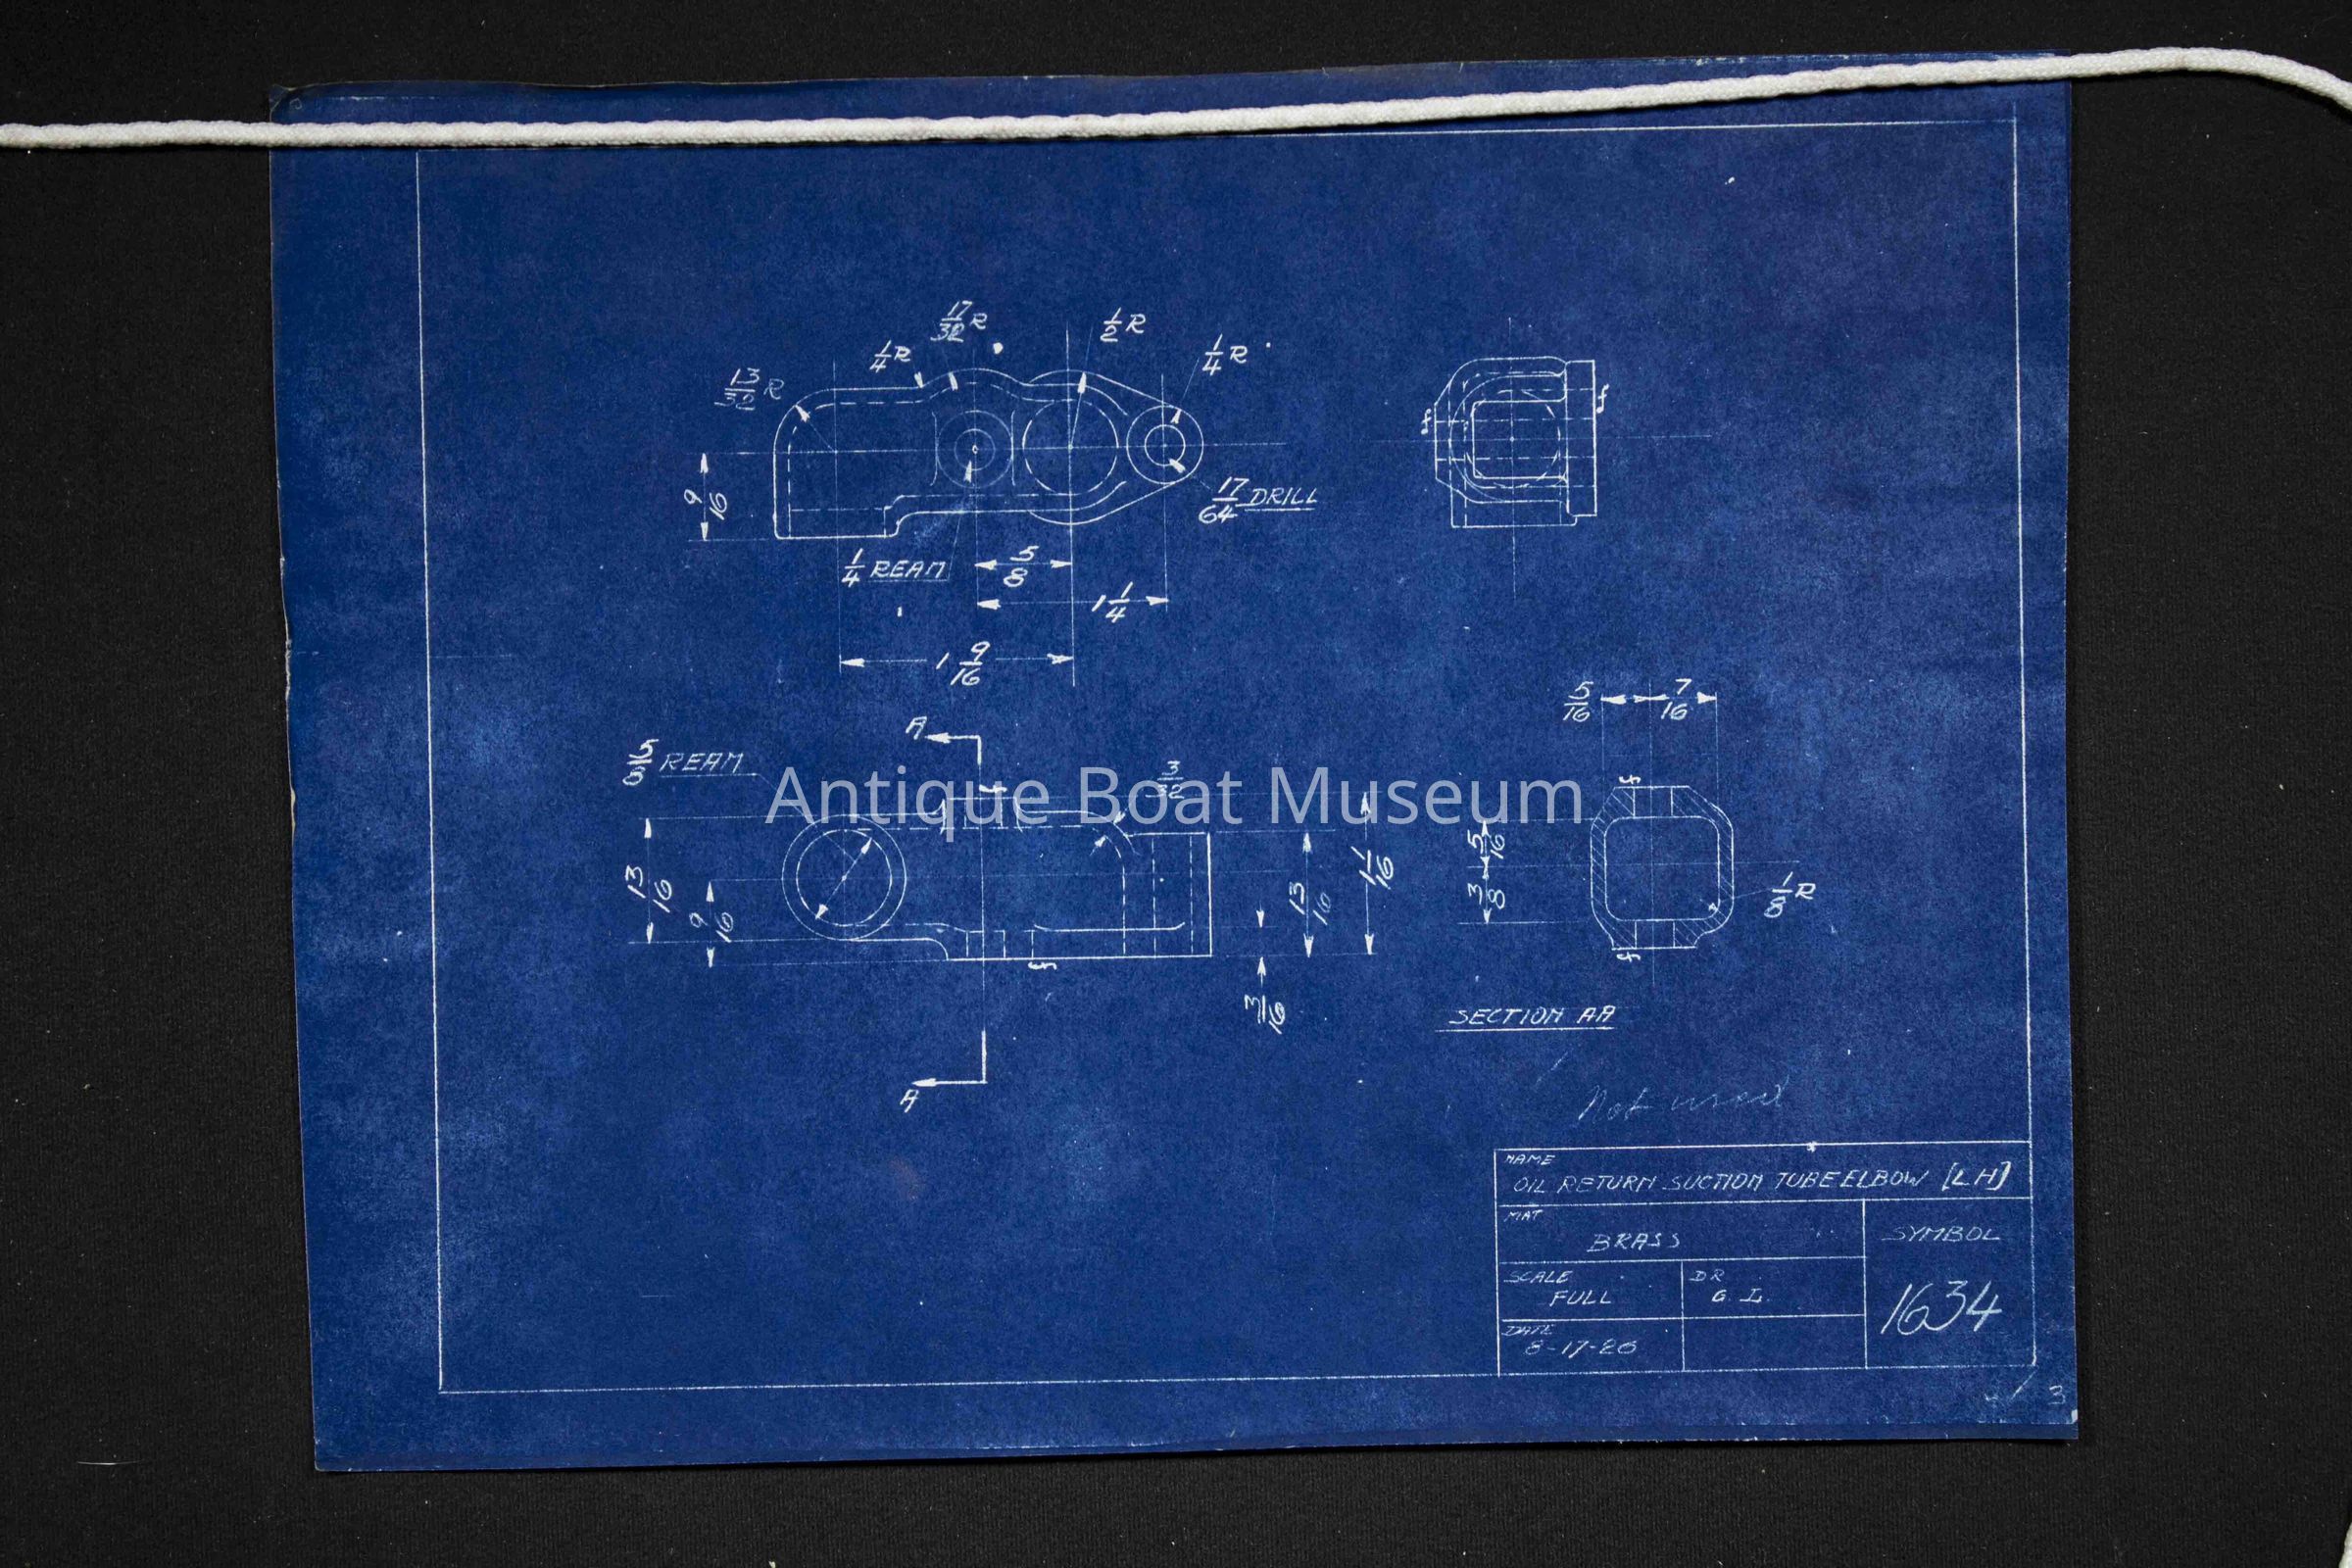 17/32 R
1/2 R
1/4 R
1/4 R
13/32 R
9/16
17/64 DRILL
1/4 REAM
5/8
1 1/4
1 9/16
5/16 7/16
A
5/8 REAM
3/32
Antique Boat Museum
13/16
9/16
13/16
1 1/16
3/16
5/16
3/8
1/8 R
SECTION AA
A
Not used
NAME
OIL RETURN SUCTION TUBE ELBOW [LH]
MAT
BRASS
SYMBOL
1634
SCALE
FULL
DR
G. L.
DATE
8-17-26
3